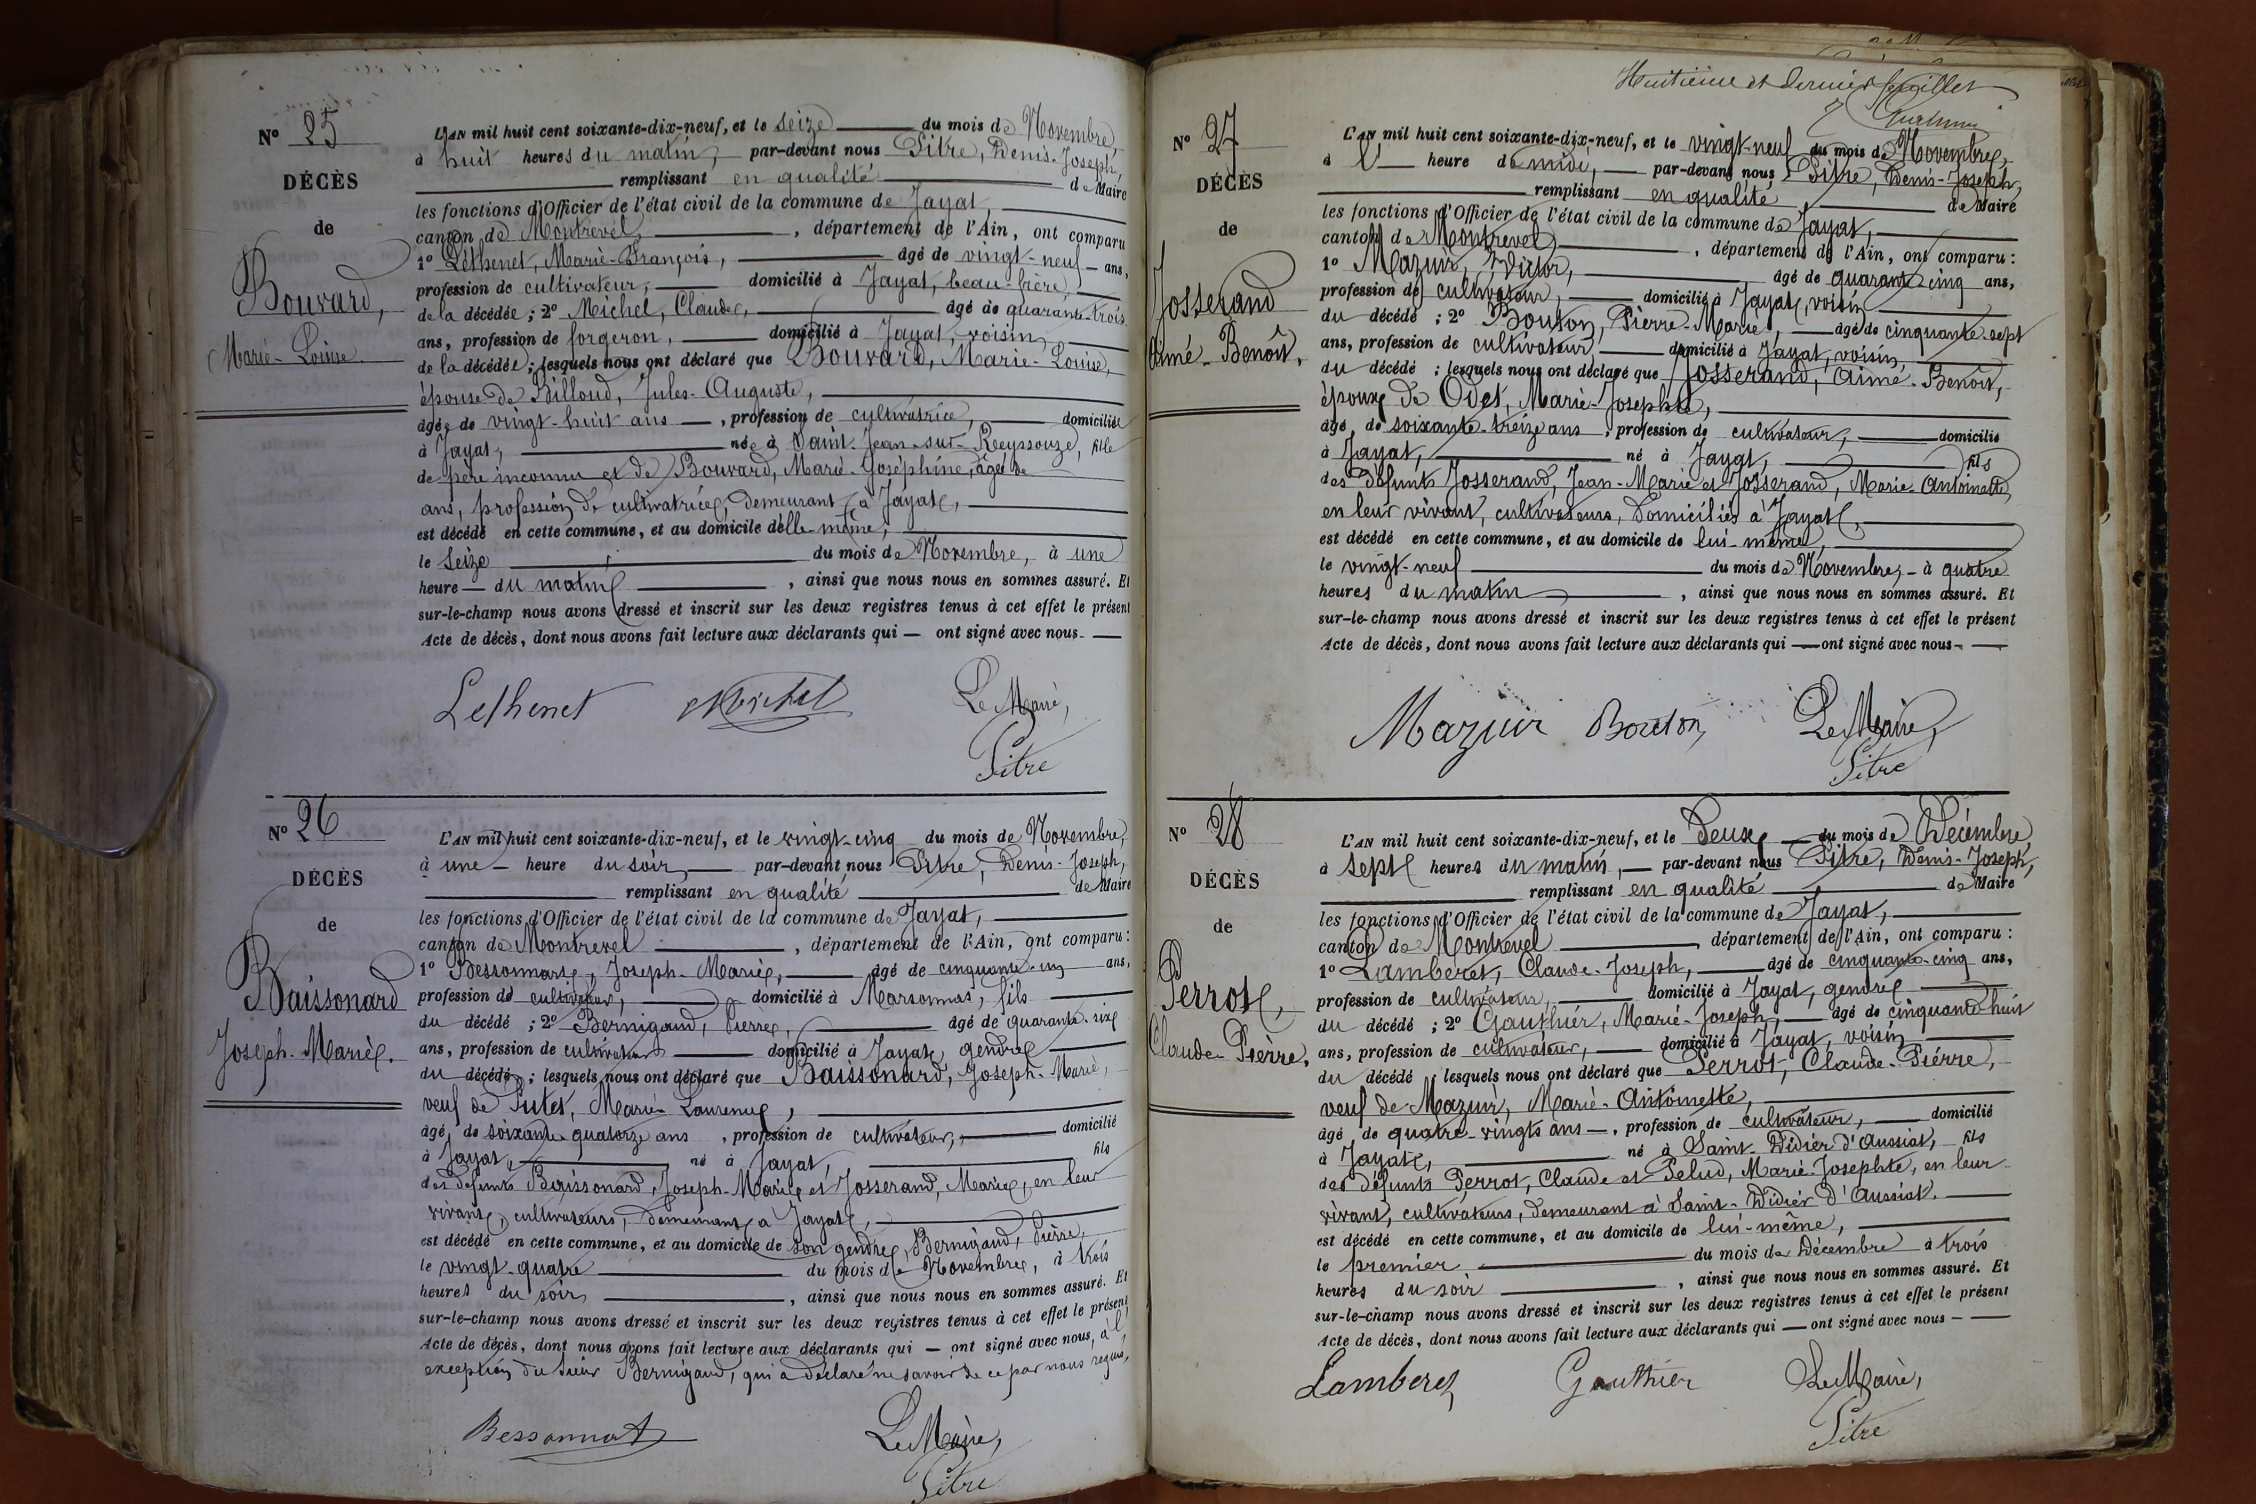 N° 25
DÉCÈS
de
Bouvard,
Marie-Louise.
L'AN mil huit cent soixante-dix-neuf, et le seize du mois de Novembre,
à huit heures du matin, par-devant nous Pitre, Denis-Joseph,
remplissant en qualité de Maire
les fonctions d'Officier de l'état civil de la commune de Jayat,
canton de Montrevel, département de l'Ain, ont comparu
1° Léthenet, Marie-François, âgé de vingt-neuf ans,
profession de cultivateur, domicilié à Jayat, beau-frère,
de la décédée; 2° Michel, Claude, âgé de quarante-trois
ans, profession de forgeron, domicilié à Jayat, voisin,
de la décédée; lesquels nous ont déclaré que Bouvard, Marie-Louise,
épouse de Billoud, Jules-Auguste,
âgée de vingt-huit ans, profession de cultivatrice, domiciliée
à Jayat, née à Saint-Jean-sur-Reyssouze, fille
de père inconnu et de Bouvard, Marie-Joséphine, âgée de
ans, profession de cultivatrice, demeurant à Jayat,
est décédé en cette commune, et au domicile d'elle-même,
le seize du mois de Novembre, à une
heure du matin, ainsi que nous nous en sommes assuré. Et
sur-le-champ nous avons dressé et inscrit sur les deux registres tenus à cet effet le présent
Acte de décès, dont nous avons fait lecture aux déclarants qui — ont signé avec nous.
Lethenet Michel Le Maire,
Pitre
N° 26
DÉCÈS
de
Baissonard
Joseph-Marie.
L'AN mil huit cent soixante-dix-neuf, et le vingt-cinq du mois de Novembre,
à une heure du soir, par-devant nous Pitre, Denis-Joseph,
remplissant en qualité de Maire
les fonctions d'Officier de l'état civil de la commune de Jayat,
canton de Montrevel, département de l'Ain, ont comparu:
1° Joseph-Marie, âgé de cinquante-un ans,
profession de cultivateur, domicilié à Marsonnas, fils
du décédé; 2° Bernigaud, Pierre, âgé de quarante-six
ans, profession de cultivateur domicilié à Jayat, gendre
du décédé; lesquels nous ont déclaré que Baissonard, Joseph-Marie,
veuf de Putet, Marie-Laurence,
âgé de soixante-quatorze ans, profession de cultivateur, domicilié
à Jayat, né à Jayat, fils
des défunts Baissonard, Joseph-Marie et Josserand, Marie, en leur
vivant, cultivateurs, demeurant à Jayat,
est décédé en cette commune, et au domicile de son gendre, Bernigaud, Pierre,
le vingt-quatre du mois de Novembre, à trois
heures du soir, ainsi que nous nous en sommes assuré. Et
sur-le-champ nous avons dressé et inscrit sur les deux registres tenus à cet effet le présent
Acte de décès, dont nous avons fait lecture aux déclarants qui — ont signé avec nous, à l'
exception du sieur Bernigaud, qui a déclaré ne savoir de ce par nous requis,
Bessonnat Le Maire,
Pitre
Huitième et dernier feuillet
N° 27
DÉCÈS
de
Josserand
Aimé-Benoît.
L'AN mil huit cent soixante-dix-neuf, et le vingt-neuf du mois de Novembre,
à l' heure de midi, par-devant nous Pitre, Denis-Joseph,
remplissant en qualité de Maire
les fonctions d'Officier de l'état civil de la commune de Jayat,
canton de Montrevel, département de l'Ain, ont comparu:
1° Mazuir, Victor, âgé de quarante-cinq ans,
profession de cultivateur, domicilié à Jayat, voisin
du décédé; 2° Bouton, Pierre-Marie, âgé de cinquante-sept
ans, profession de cultivateur domicilié à Jayat, voisin,
du décédé; lesquels nous ont déclaré que Josserand, Aimé-Benoît,
époux de Odet, Marie-Josephte,
âgé de soixante-treize ans, profession de cultivateur, domicilié
à Jayat, né à Jayat, fils
des défunts Josserand, Jean-Marie et Josserand, Marie-Antoinette,
en leur vivant, cultivateurs, domiciliés à Jayat,
est décédé en cette commune, et au domicile de lui-même,
le vingt-neuf du mois de Novembre, à quatre
heures du matin, ainsi que nous nous en sommes assuré. Et
sur-le-champ nous avons dressé et inscrit sur les deux registres tenus à cet effet le présent
Acte de décès, dont nous avons fait lecture aux déclarants qui — ont signé avec nous.
Mazuir Bouton Le Maire,
Pitre
N° 28
DÉCÈS
de
Perrot,
Claude-Pierre.
L'AN mil huit cent soixante-dix-neuf, et le deux du mois de Décembre,
à sept heures du matin, par-devant nous Pitre, Denis-Joseph,
remplissant en qualité de Maire
les fonctions d'Officier de l'état civil de la commune de Jayat,
canton de Montrevel département de l'Ain, ont comparu:
1° Lamberet, Claude-Joseph, âgé de cinquante-cinq ans,
profession de cultivateur, domicilié à Jayat, gendre
du décédé; 2° Gauthier, Marie-Joseph, âgé de cinquante-huit
ans, profession de cultivateur, domicilié à Jayat, voisin
du décédé lesquels nous ont déclaré que Perrot, Claude-Pierre,
veuf de Mazuir, Marie-Antoinette,
âgé de quatre-vingts ans, profession de cultivateur, domicilié
à Jayat, né à Saint-Didier d'Aussiat, fils
des défunts Perrot, Claude et Pelud, Marie-Josephte, en leur
vivant, cultivateurs, demeurant à Saint-Didier d'Aussiat.
est décédé en cette commune, et au domicile de lui-même,
le premier du mois de Décembre à trois
heures du soir, ainsi que nous nous en sommes assuré. Et
sur-le-champ nous avons dressé et inscrit sur les deux registres tenus à cet effet le présent
Acte de décès, dont nous avons fait lecture aux déclarants qui — ont signé avec nous
Lamberet Gauthier Le Maire,
Pitre